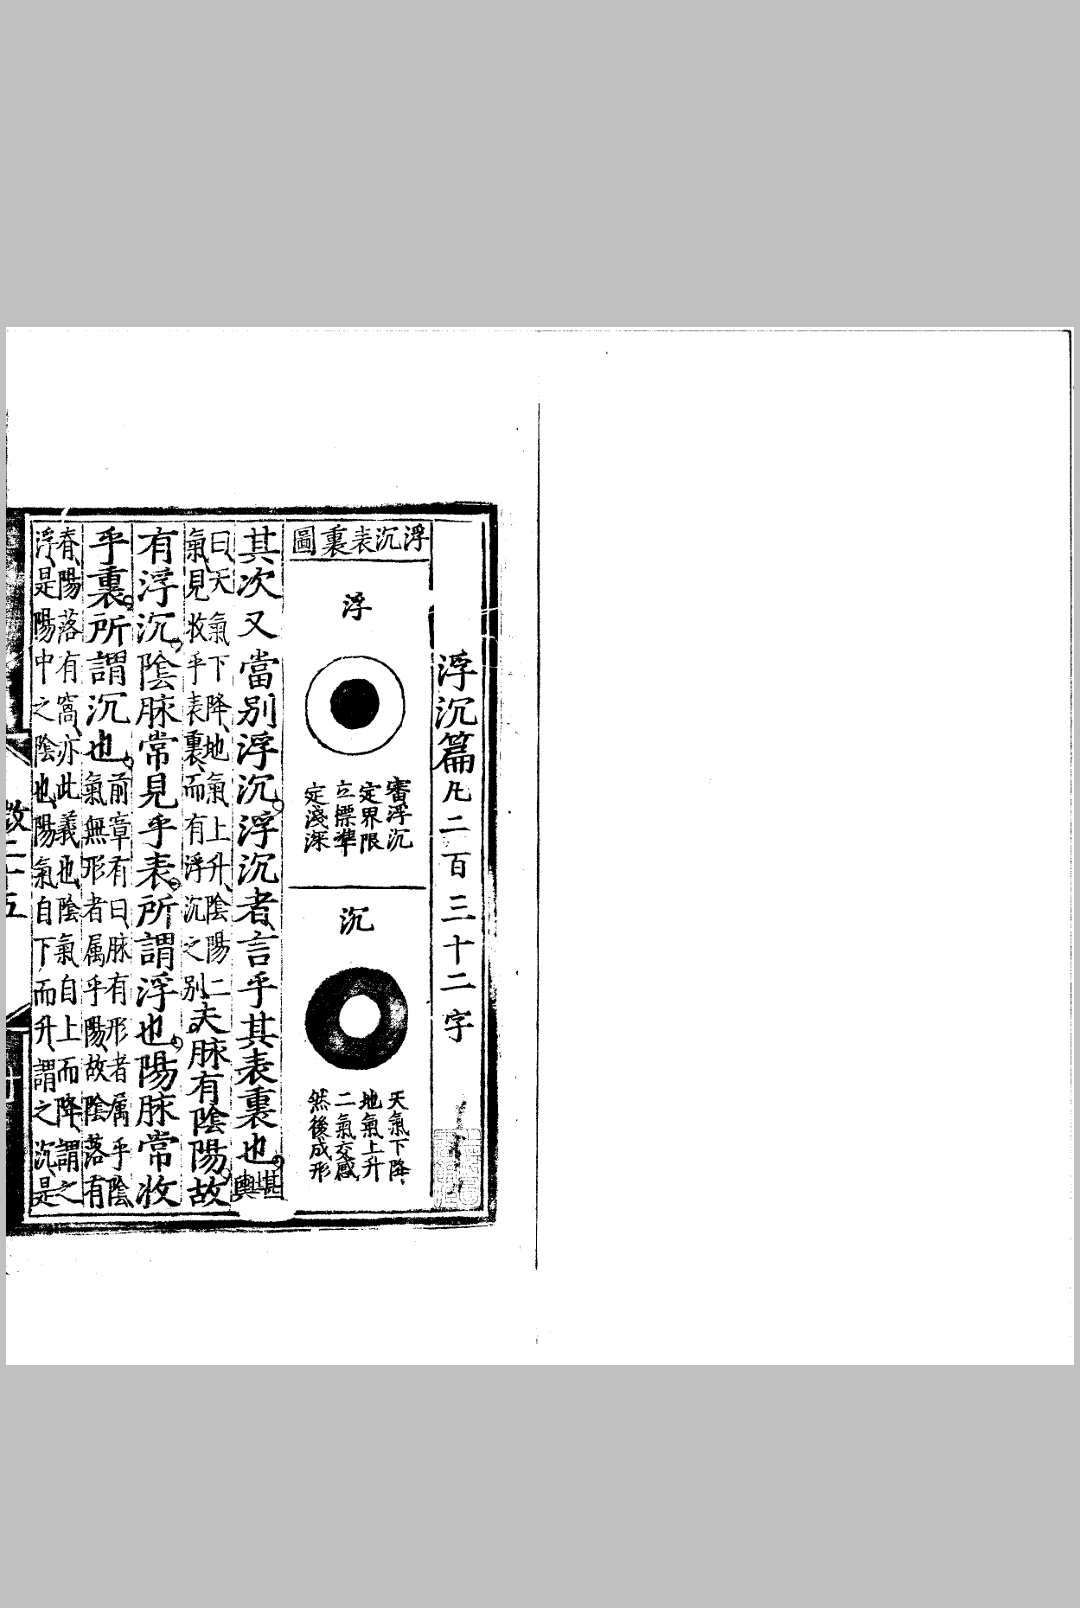 浮沉篇凡二百三十二字
浮沉表裏圖
浮
審浮沉
定界限
立標準
定淺深
沉
天氣下降
地氣上升
二氣交感
然後成形
其次又當別浮沉浮沉者言乎其表裏也堪輿
曰天氣下降地氣上升陰陽二
氣見收乎表裏而有浮沉之别夫脉有陰陽故
有浮沉陰脉常見乎表所謂浮也陽脉常收
乎裏所謂沉也前章有曰脉有形者属乎陰
氣無形者属乎陽故陰落有
脊陽落有窩亦此義也陰氣自上而降謂之
浮是陽中之陰也陽氣自下而升謂之沉是